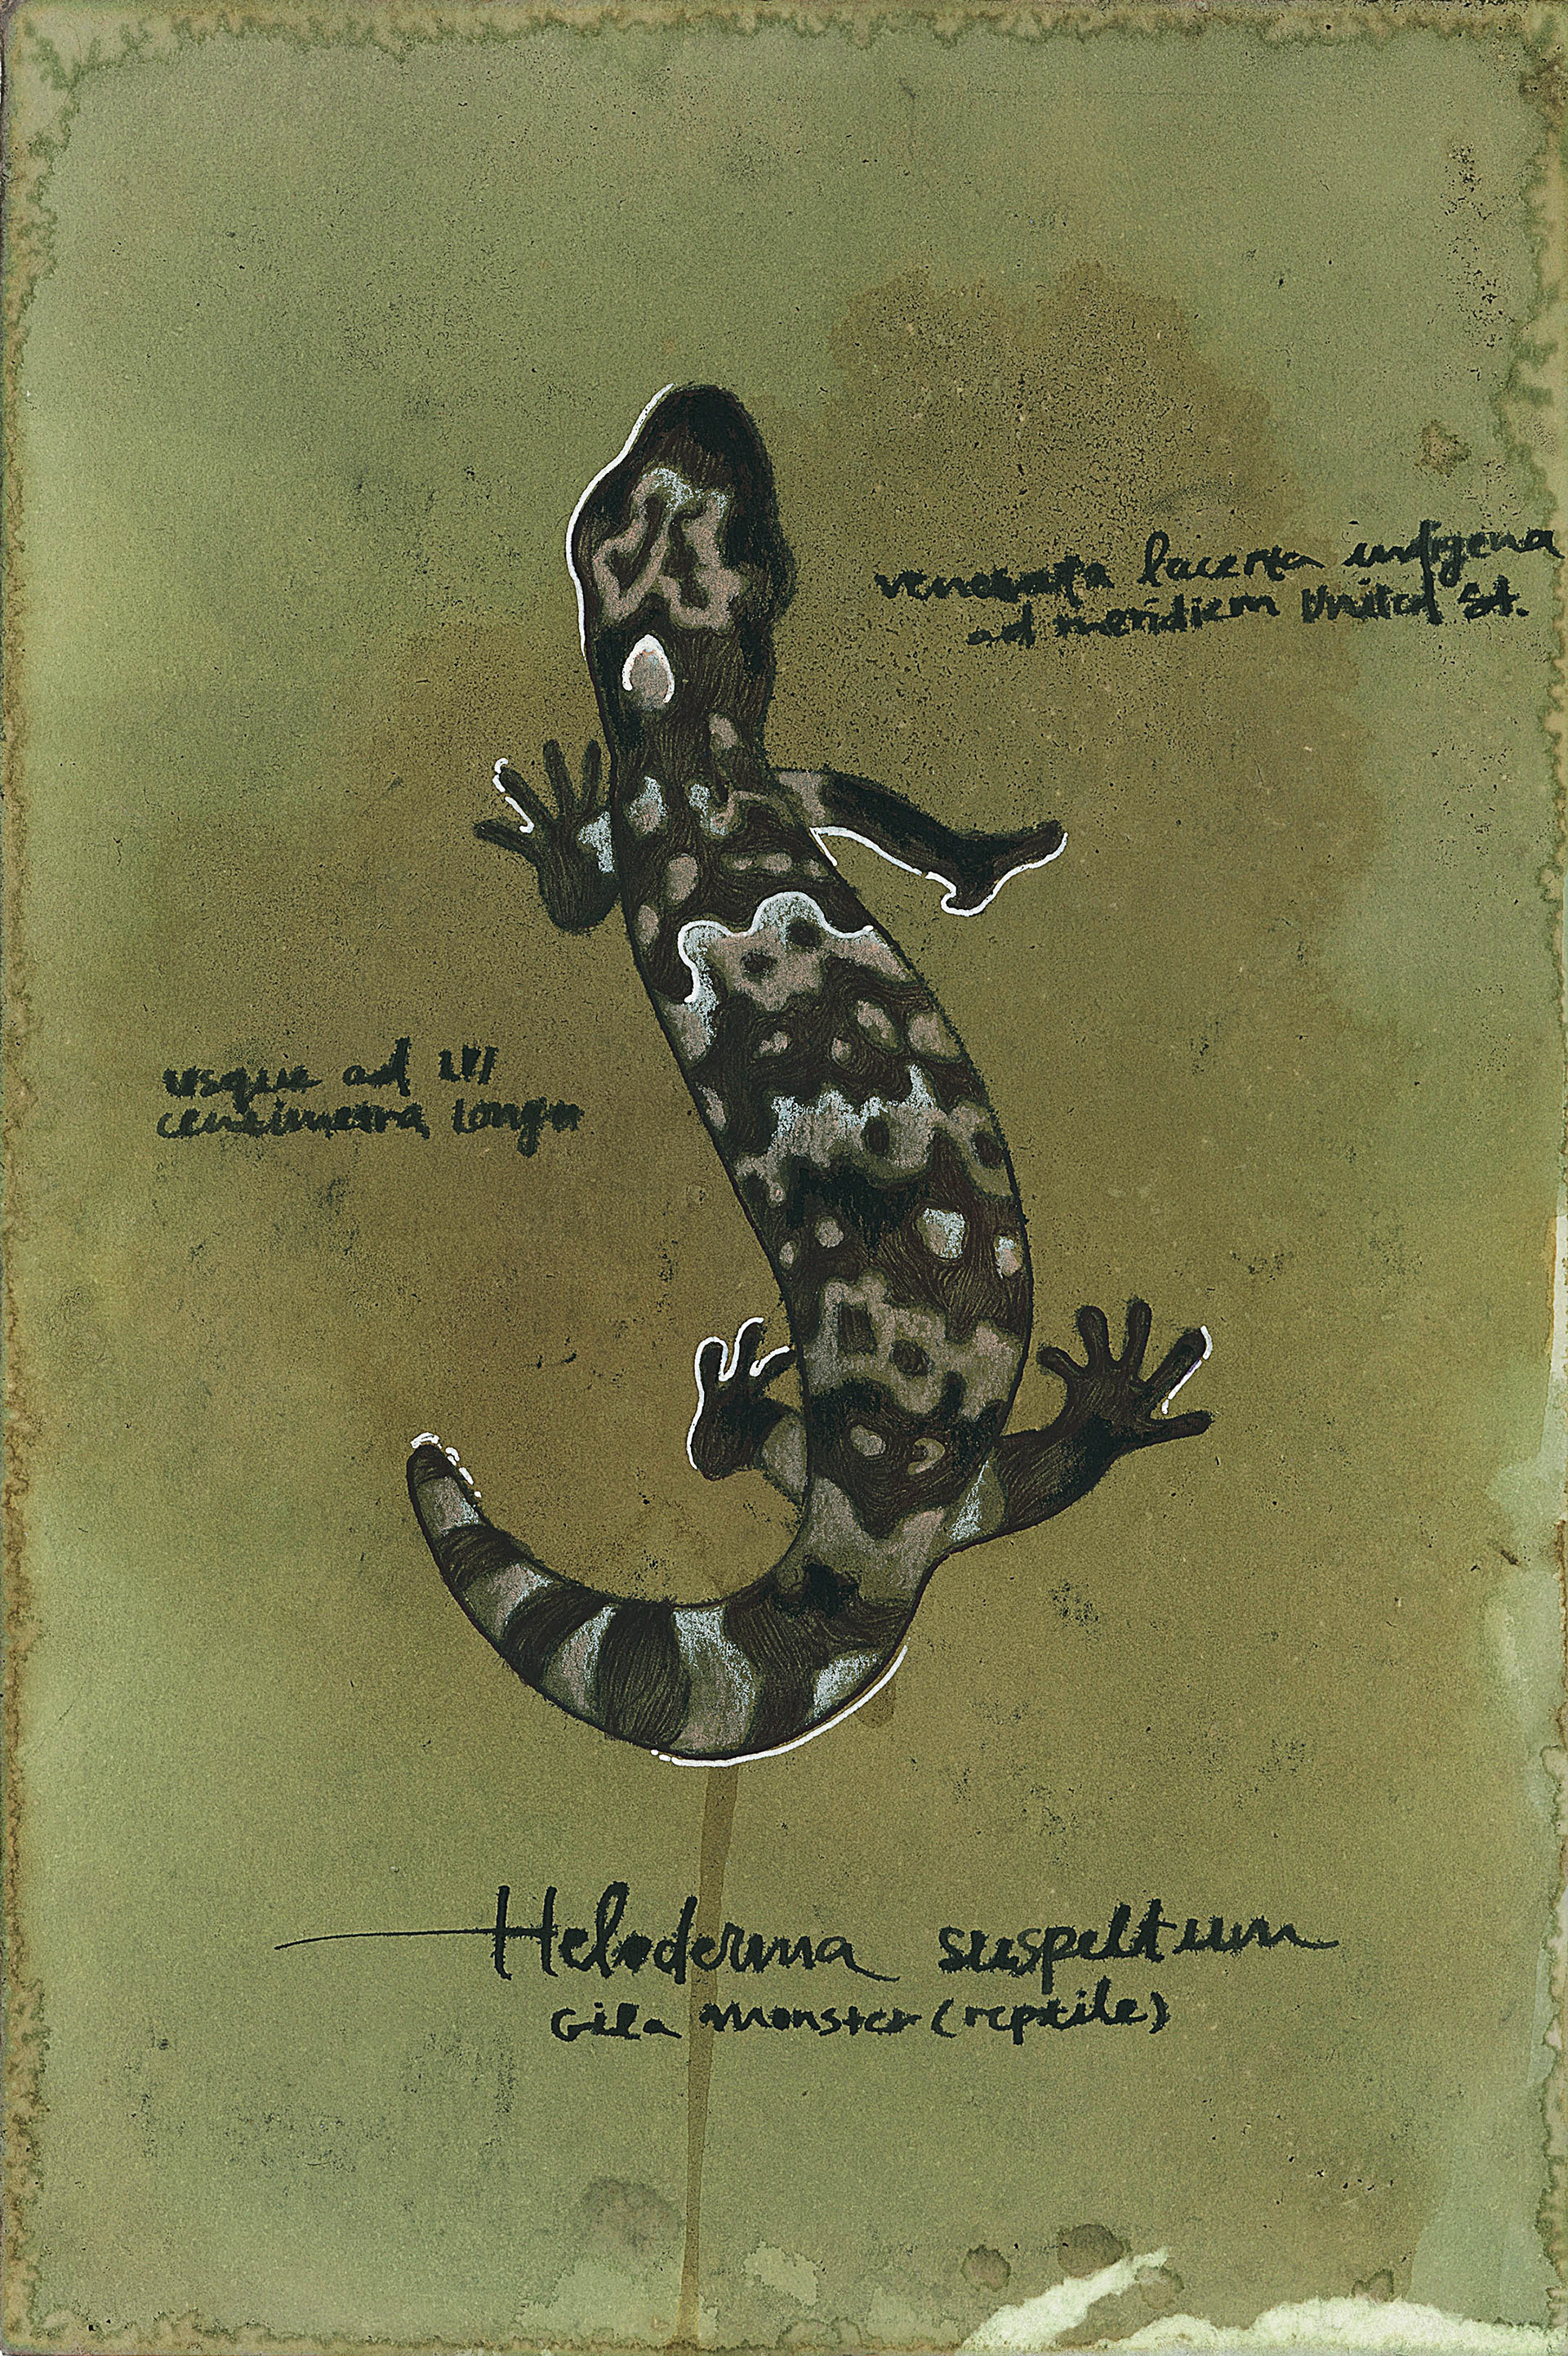 venenata lacerta indigena
ad meridiem United St.
usque ad LVI
centimetra longa
Heloderma suspectum
Gila Monster (reptile)